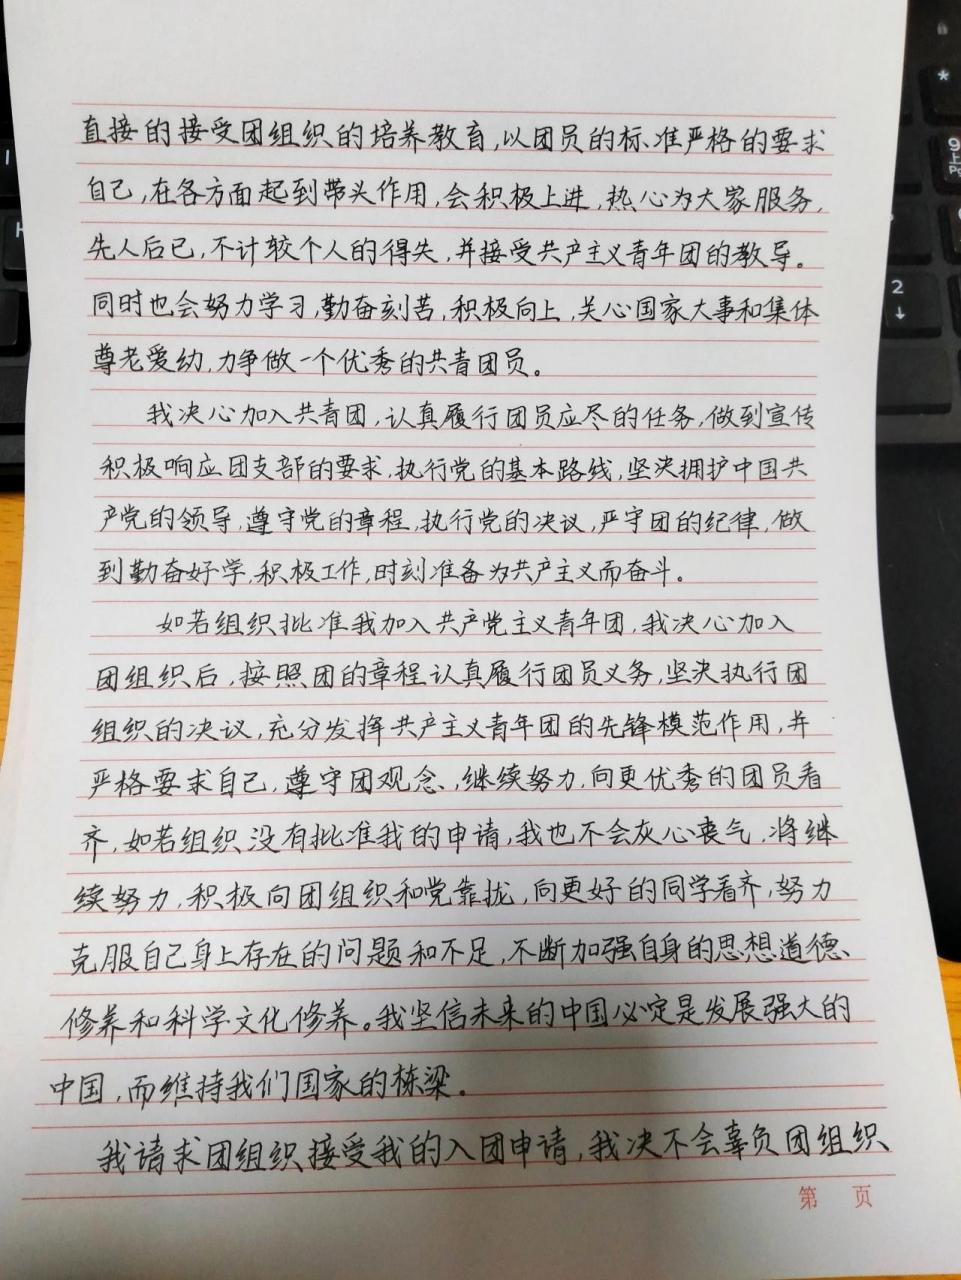 直接的接受团组织的培养教育,以团员的标准严格的要求
自己,在各方面起到带头作用,会积极上进,热心为大家服务,
先人后已,不计较个人的得失,并接受共产主义青年团的教导。
同时也会努力学习,勤奋刻苦,积极向上,关心国家大事和集体
尊老爱幼,力争做一个优秀的共青团员。
我决心加入共青团,认真履行团员应尽的任务,做到宣传
积极响应团支部的要求,执行党的基本路线,坚决拥护中国共
产党的领导,遵守党的章程,执行党的决议,严守团的纪律,做
到勤奋好学,积极工作,时刻准备为共产主义而奋斗。
如若组织批准我加入共产党主义青年团,我决心加入
团组织后,按照团的章程认真履行团员义务,坚决执行团
组织的决议,充分发挥共产主义青年团的先锋模范作用,并
严格要求自己,遵守团观念,继续努力,向更优秀的团员看
齐,如若组织没有批准我的申请,我也不会灰心丧气,将继
续努力,积极向团组织和党靠拢,向更好的同学看齐,努力
克服自己身上存在的问题和不足,不断加强自身的思想道德、
修养和科学文化修养。我坚信未来的中国必定是发展强大的
中国,而维持我们国家的栋梁。
我请求团组织接受我的入团申请,我决不会辜负团组织
第 页
9
上
2
↓
*